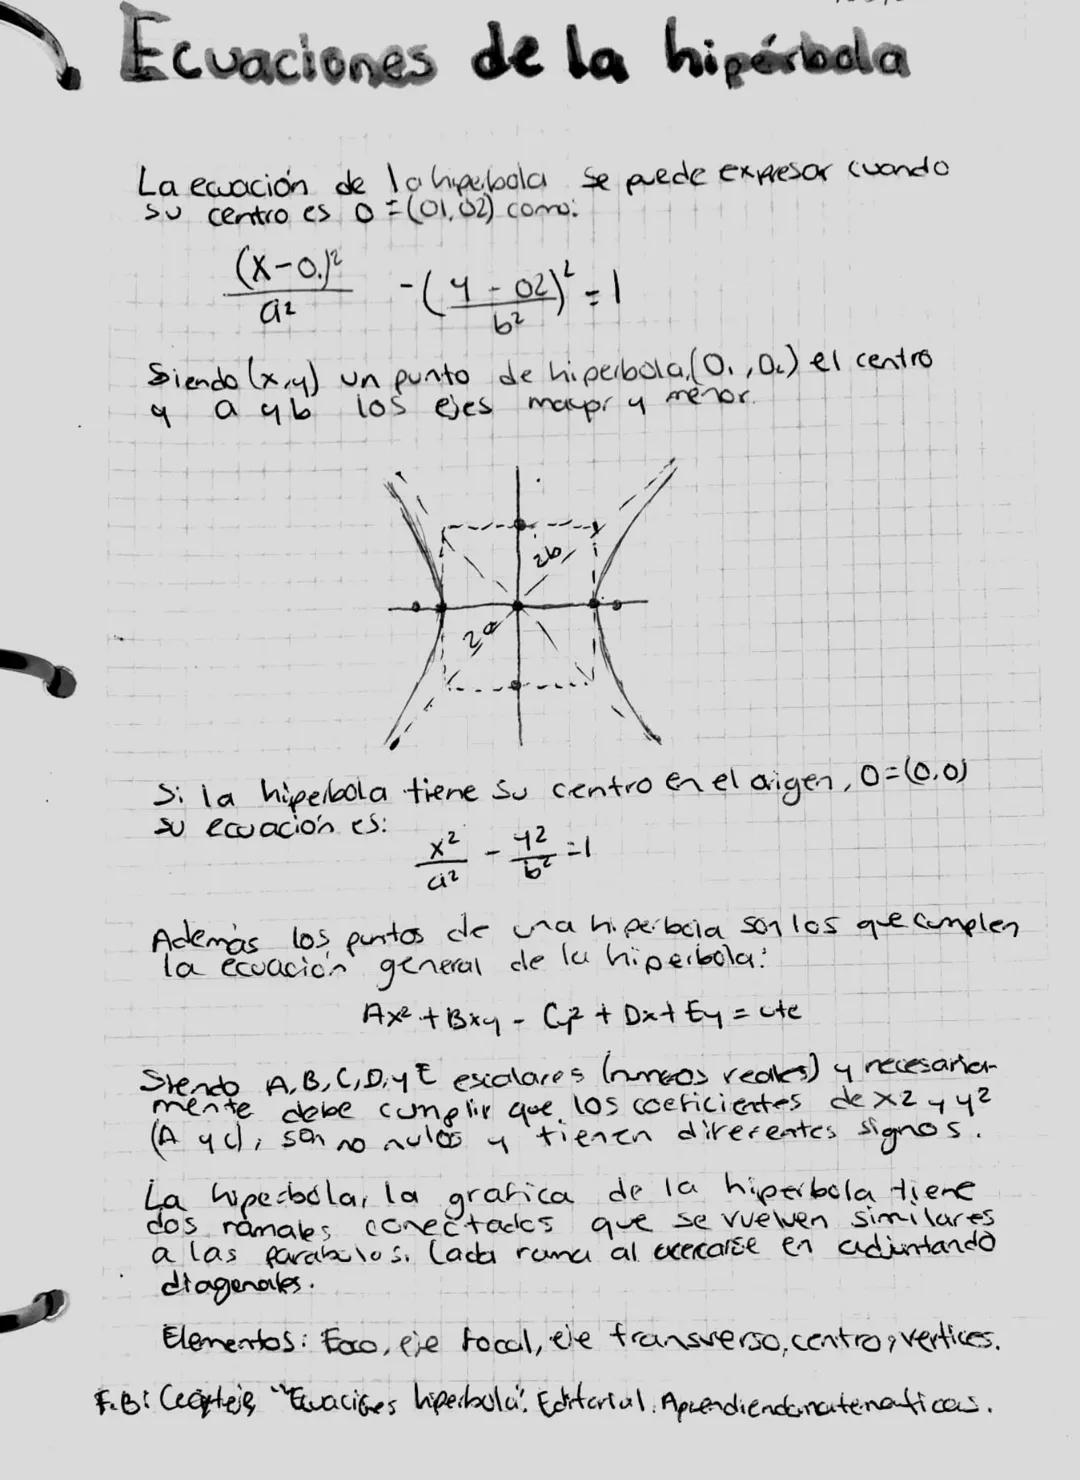 Ecuaciones de la hipérbola
La ecuación de la hiperbola se puede expresar cuando
su centro es O = (O1, O2) como:
(x-O1)²/a² - (y - O2)²/b² = 1
Siendo (x,y) un punto de hiperbola, (O1, O2) el centro
y a y b los ejes mayor y menor.
2b
2a
Si la hiperbola tiene su centro en el origen, O=(0,0)
su ecuación es:
x²/a² - y²/b² = 1
Además los puntos de una hiperbola son los que cumplen
la ecuación general de la hiperbola:
Ax² + Bxy - Cy² + Dx + Ey = cte
Siendo A, B, C, D, y E escalares (numeros reales) y necesaria-
mente debe cumplir que los coeficientes de x2 y y2
(A y C), son no nulos y tienen diferentes signos.
La hiperbola, la grafica de la hiperbola tiene
dos ramales conectados que se vuelven similares
a las parabolas. Cada rama al acercarse en adjuntando
diagonales.
Elementos: Foco, eje focal, eje transverso, centro, vertices.
F.B: "Ecuaciones hiperbola". Editorial. Aprendiendomatematicas.